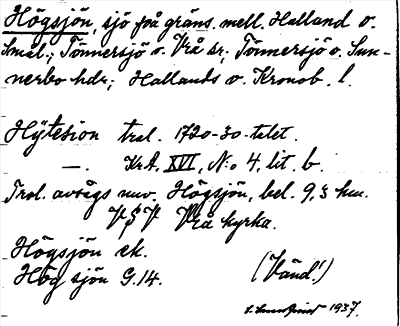 Högsjön, sjö på gräns. mell. Halland o.
Smål.; Tönnersjö o. Vrå sr; Tönnersjö o. Sun-
nerbo hdr; Hallands o. Kronob. l.
Hÿtesion trol. 1720-30-talet.
—. Kr.A. XVI, No 4, lit. b.
Trol. avsågs nuv. Högsjön, bel. 9,3 km.
VSV Vrå kyrka.
Högsjön ek.
Hög sjön G.14. (Vänd!)
1937.